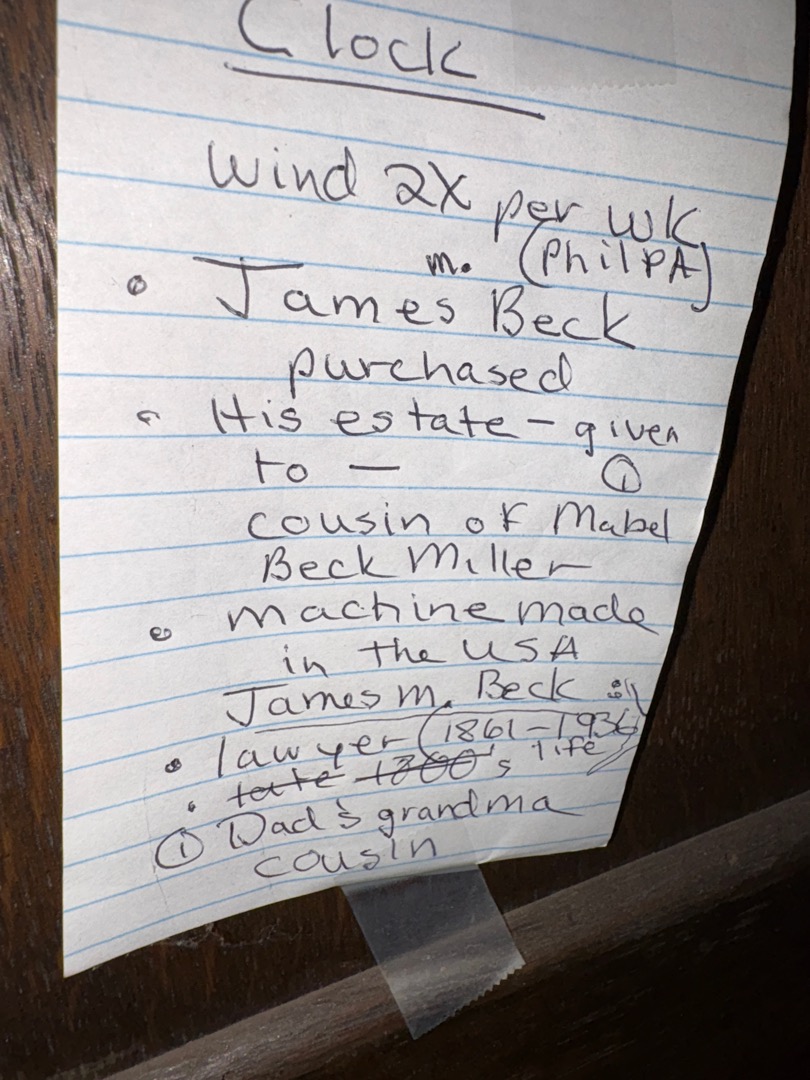 Clock
Wind 2X per WK
m. (Phil PA)
• James Beck
purchased
• His estate - given
to — ①
cousin of Mabel
Beck Miller
• machine made
in the USA
James m. Beck
• lawyer (1861-1936)
• late 1800's life
① Dad's grandma
cousin